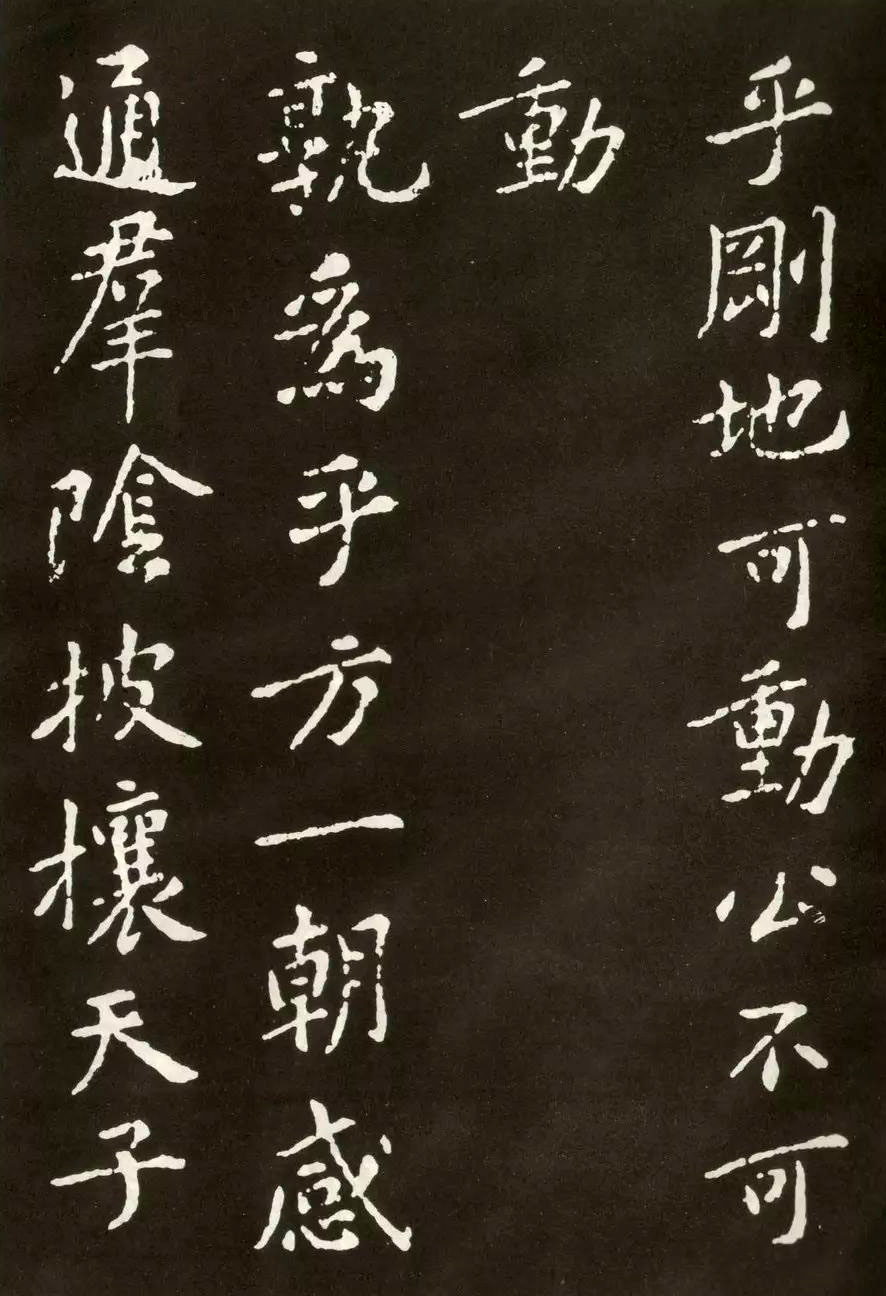 乎剛地可動公不可
動
孰爲乎方一朝感
通羣陰披攘天子